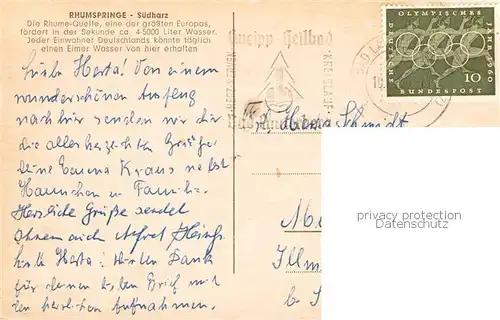 RHUMSPRINGE - Südharz
Die Rhume-Quelle, eine der größten Europas,
fördert in der Sekunde ca. 4-5000 Liter Wasser.
Jeder Einwohner Deutschlands könnte täglich
einen Eimer Wasser von hier erhalten
Liebe Herta! Von einem
wunderschönen Ausflug
nach hier senden wir dir
die allerherzlichsten Grüße
deine Emma Kraus nebst
Hannchen u. Familie.
Herzliche Grüße sendet
Ihnen auch Alfred
Liebe Herta! Vielen Dank
für deinen lieben Brief mit
den herrlichen Aufnahmen.
Kneipp Heilbad
HERZ NERVEN
KREISLAUF
Bad Lauterberg
OLYMPISCHES
JAHR 1960
10
DEUTSCHE
BUNDESPOST
Herta Schmidt
privacy protection
Datenschutz